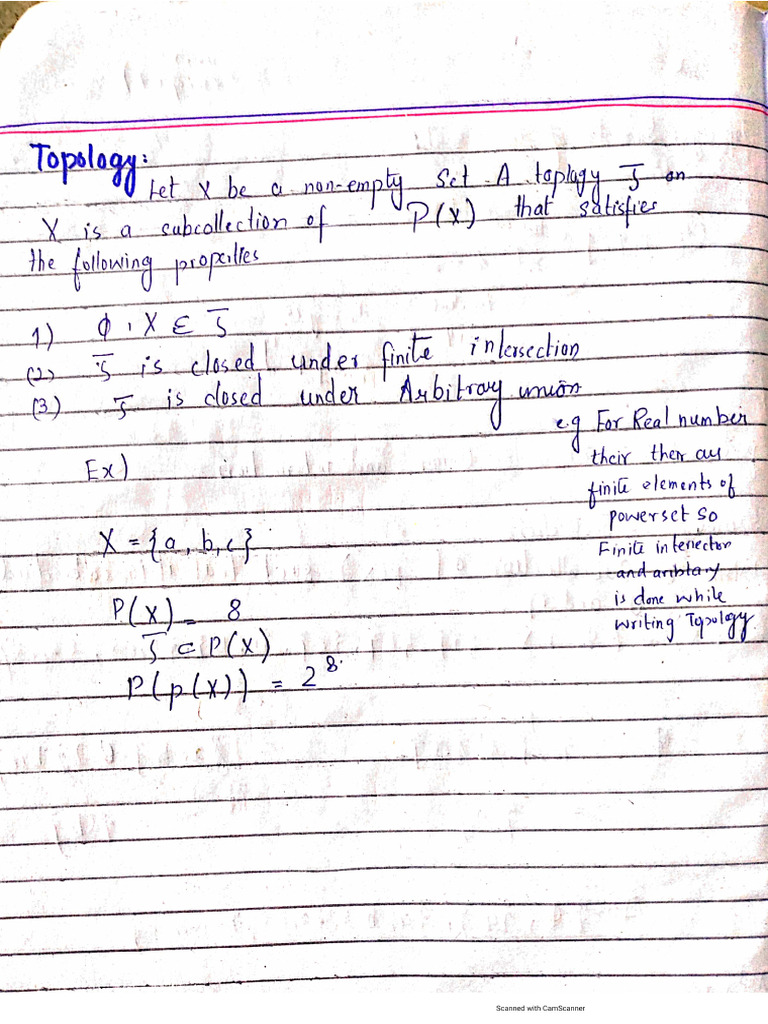 Topology:
Let X be a non-empty Set A toplogy τ on
X is a subcollection of P(X) that satisfies
the following properties
1) ϕ, X ∈ τ
(2) τ is closed under finite intersection
(3) τ is closed under Arbitray union
e.g For Real number
their ther au
finite elements of
powerset so
Finite intersection
and
is done while
writing Topology
Ex)
X = {a, b, c}
P(X) = 8
τ ⊂ P(X)
P(p(X)) = 2^8.
Scanned with CamScanner